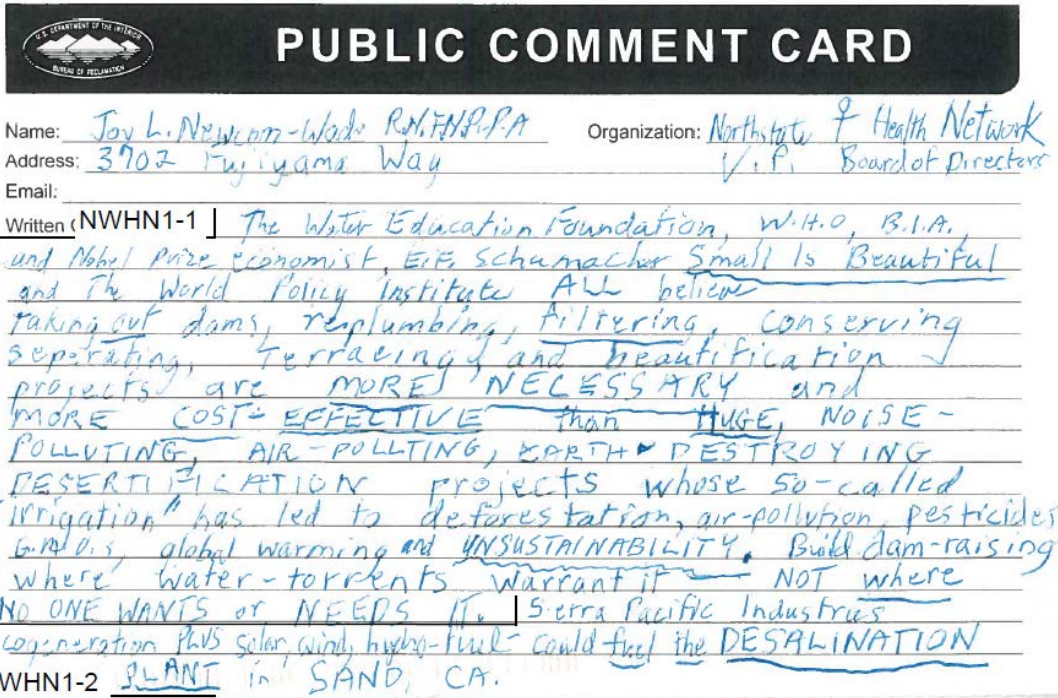 U.S. DEPARTMENT OF THE INTERIOR
BUREAU OF RECLAMATION
PUBLIC COMMENT CARD
Name: Joy L. Newcom-Wade R.N.F.N.P. P.A
Organization: Northstate ♀ Health Network
Address: 3702 Fujiyama Way
V.P. Board of Directors
Email:
Written C NWHN1-1 The Water Education Foundation, W.H.O, B.I.A.,
and Nobel Prize economist, E.F. Schumacher Small Is Beautiful
and The World Policy Institute ALL believe
taking out dams, replumbing, filtering, conserving
seperating, Terracing, and beautification
projects are MORE NECESSARY and
MORE COST-EFFECTIVE than HUGE, NOISE-
POLLUTING, AIR-POLLTING, EARTH-DESTROYING
DESERTIFICATION projects whose so-called
irrigation" has led to deforestation, air-pollution, pesticides
G.M.O.s, global warming and UNSUSTAINABILITY. Build dam-raising
where water-torrents warrant it — NOT where
NO ONE WANTS or NEEDS IT. Sierra Pacific Industries
cogeneration PLUS solar, wind, hydro-fuel- could fuel the DESALINATION
WHN1-2 PLANT in SAND, CA.